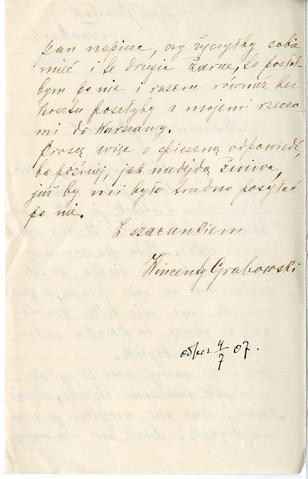 pan napisze, czy życzyłby sobie
mieć i te drugie żarna, to posłał
bym po nie i razem również bez
kosztu poszłyby z mojemi rzecza
mi do Warszawy.
Proszę więc o spieszną odpowiedź,
bo później, jak nadejdą żniwa,
już by mi było trudno posyłać
po nie.
Z szacunkiem
Wincenty Grabowski
4/7 07.